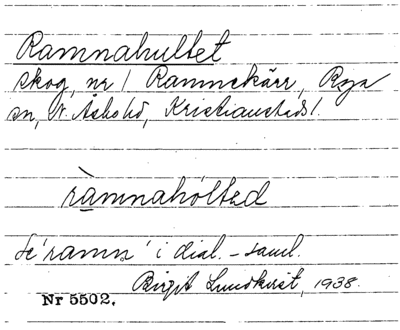 Ramnahultet
skog, nr 1 Ramnekärr, Röya
sn, N. Åsbohd, Kristianstads l.
ràmnahóltəd
Se 'ramn' i dial.-saml.
Birgit Lundkvist, 1938.
Nr 5502.